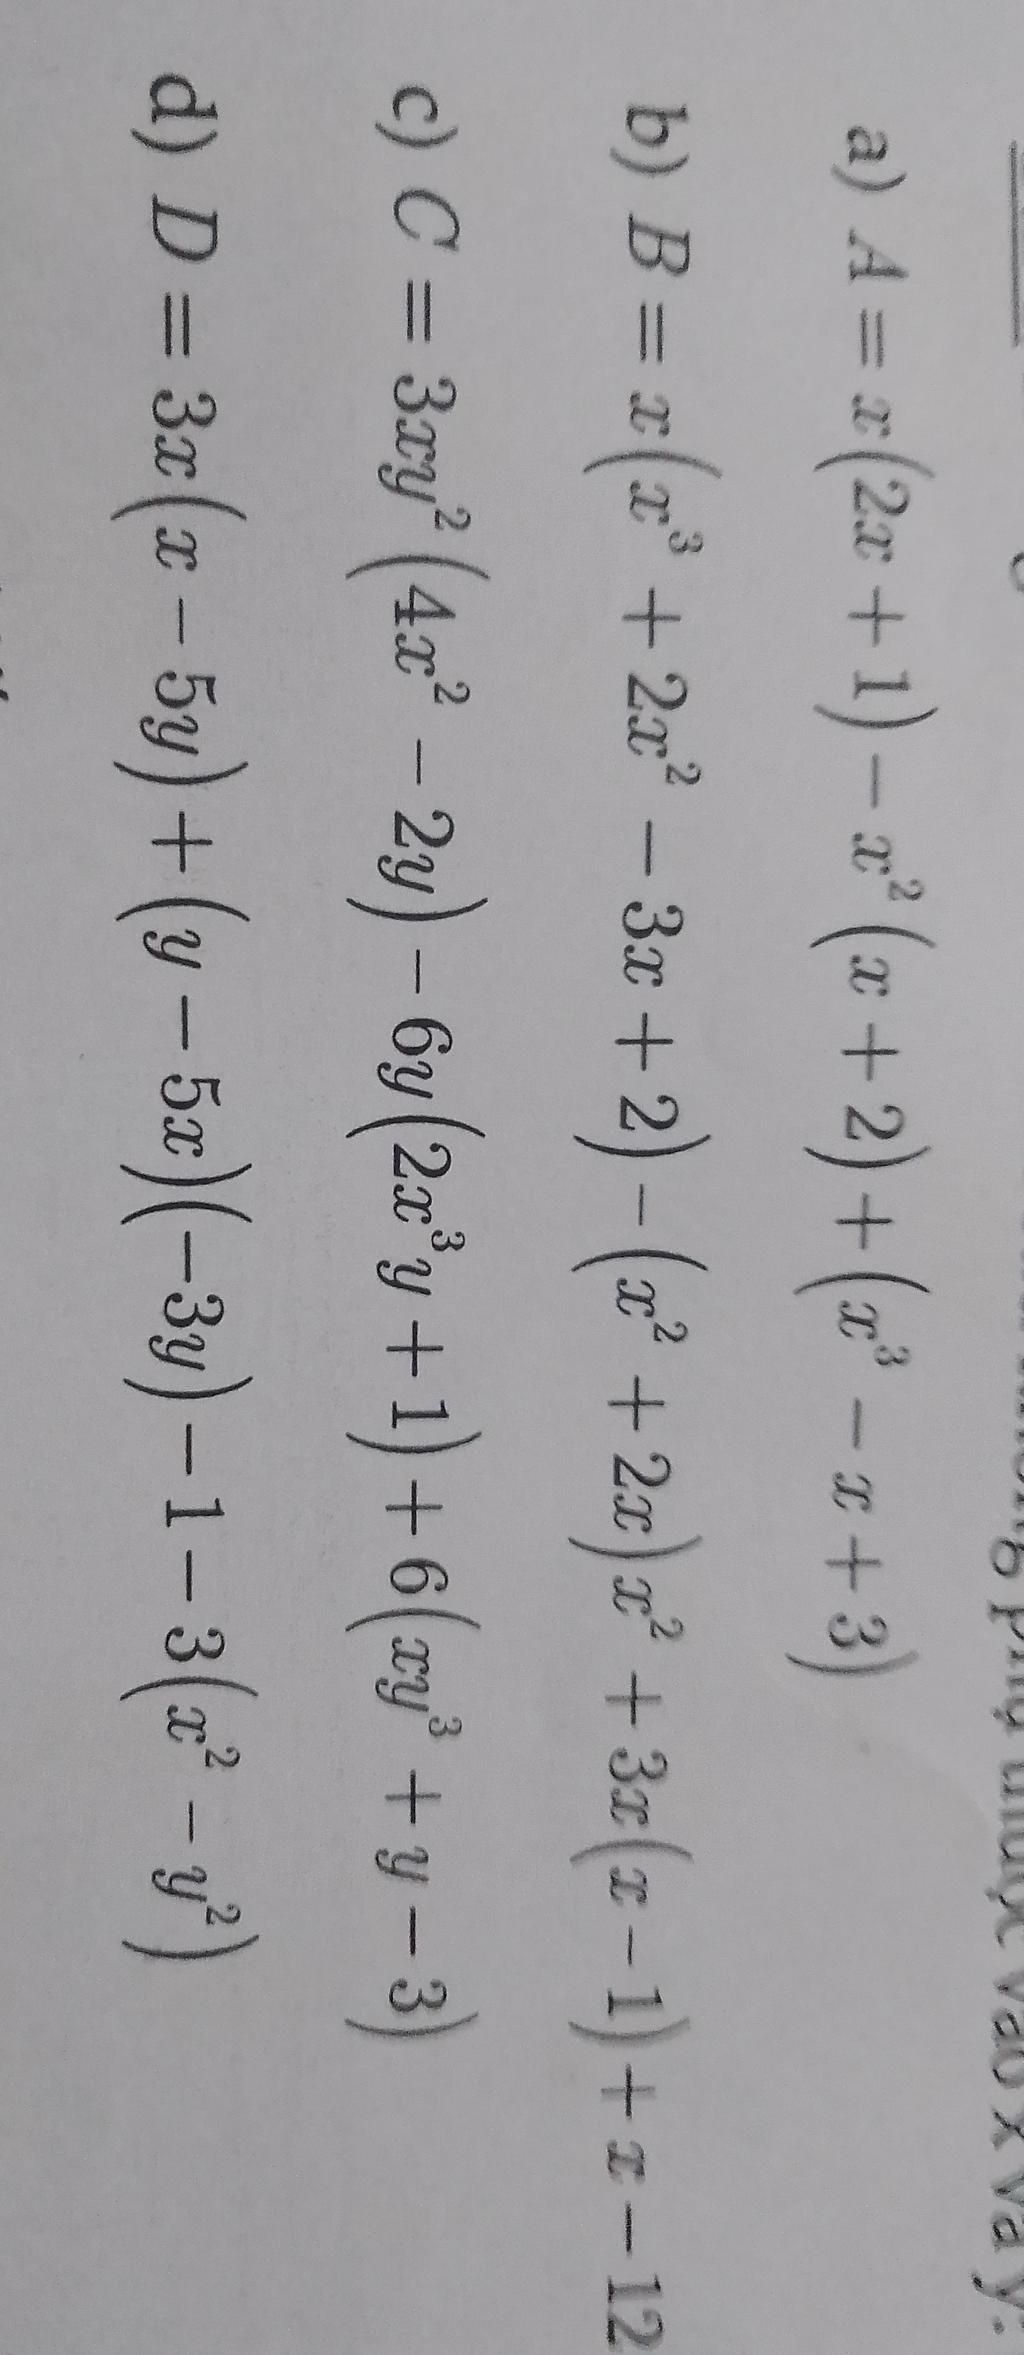 phụ thuộc vào x và y:
a) A = x(2x + 1) − x²(x + 2) + (x³ − x + 3)
b) B = x(x³ + 2x² − 3x + 2) − (x² + 2x)x² + 3x(x − 1) + x − 12
c) C = 3xy²(4x² − 2y) − 6y(2x³y + 1) + 6(xy³ + y − 3)
d) D = 3x(x − 5y) + (y − 5x)(−3y) − 1 − 3(x² − y²)